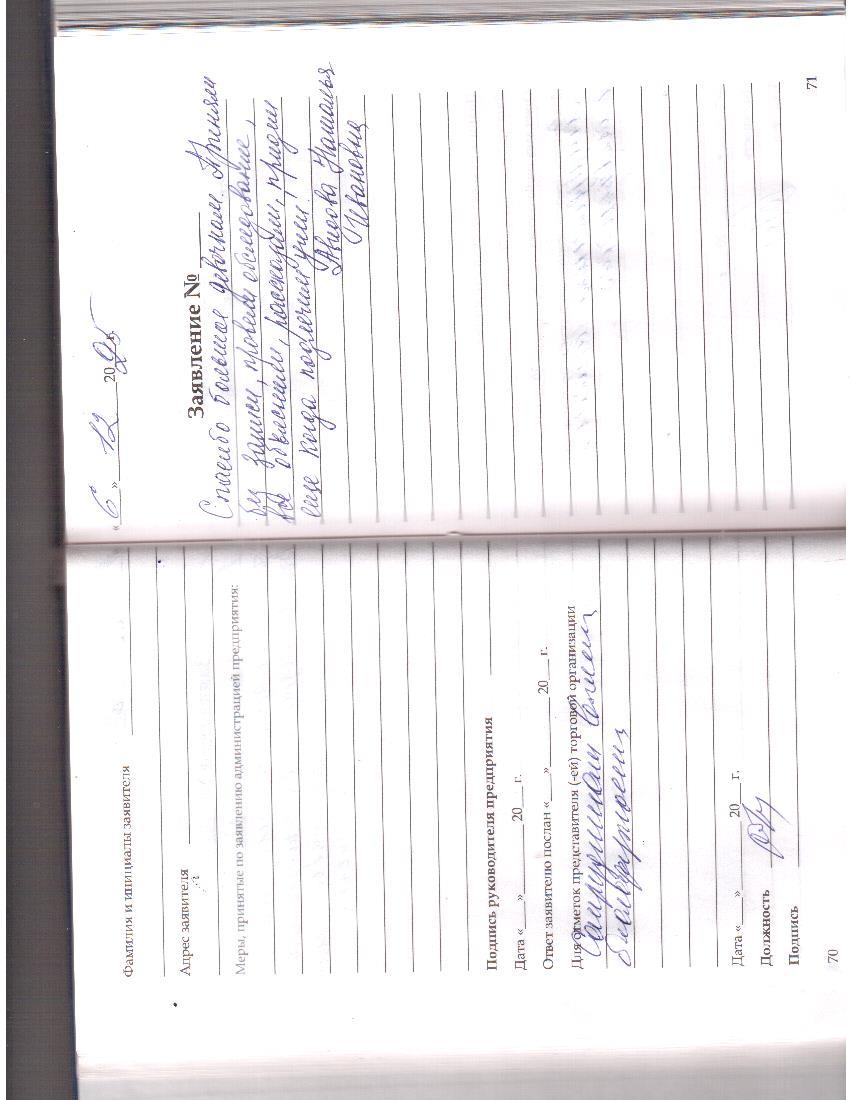 Фамилия и инициалы заявителя
Адрес заявителя
Меры, принятые по заявлению администрацией предприятия:
Подпись руководителя предприятия
Дата «___» ________ 20___ г.
Ответ заявителю послан «___» ________ 20___ г.
Для отметок представителя (-ей) торговой организации
Сотрудникам
Дата «___» ________ 20___ г.
Должность
Подпись
70
«6» 12 2025
Заявление № ____
Спасибо большое девочкам. Приняли
без записи, провели обследование,
все объяснили, рассказали, придем
еще когда подлечим уши!
Наталья
Ивановна
71